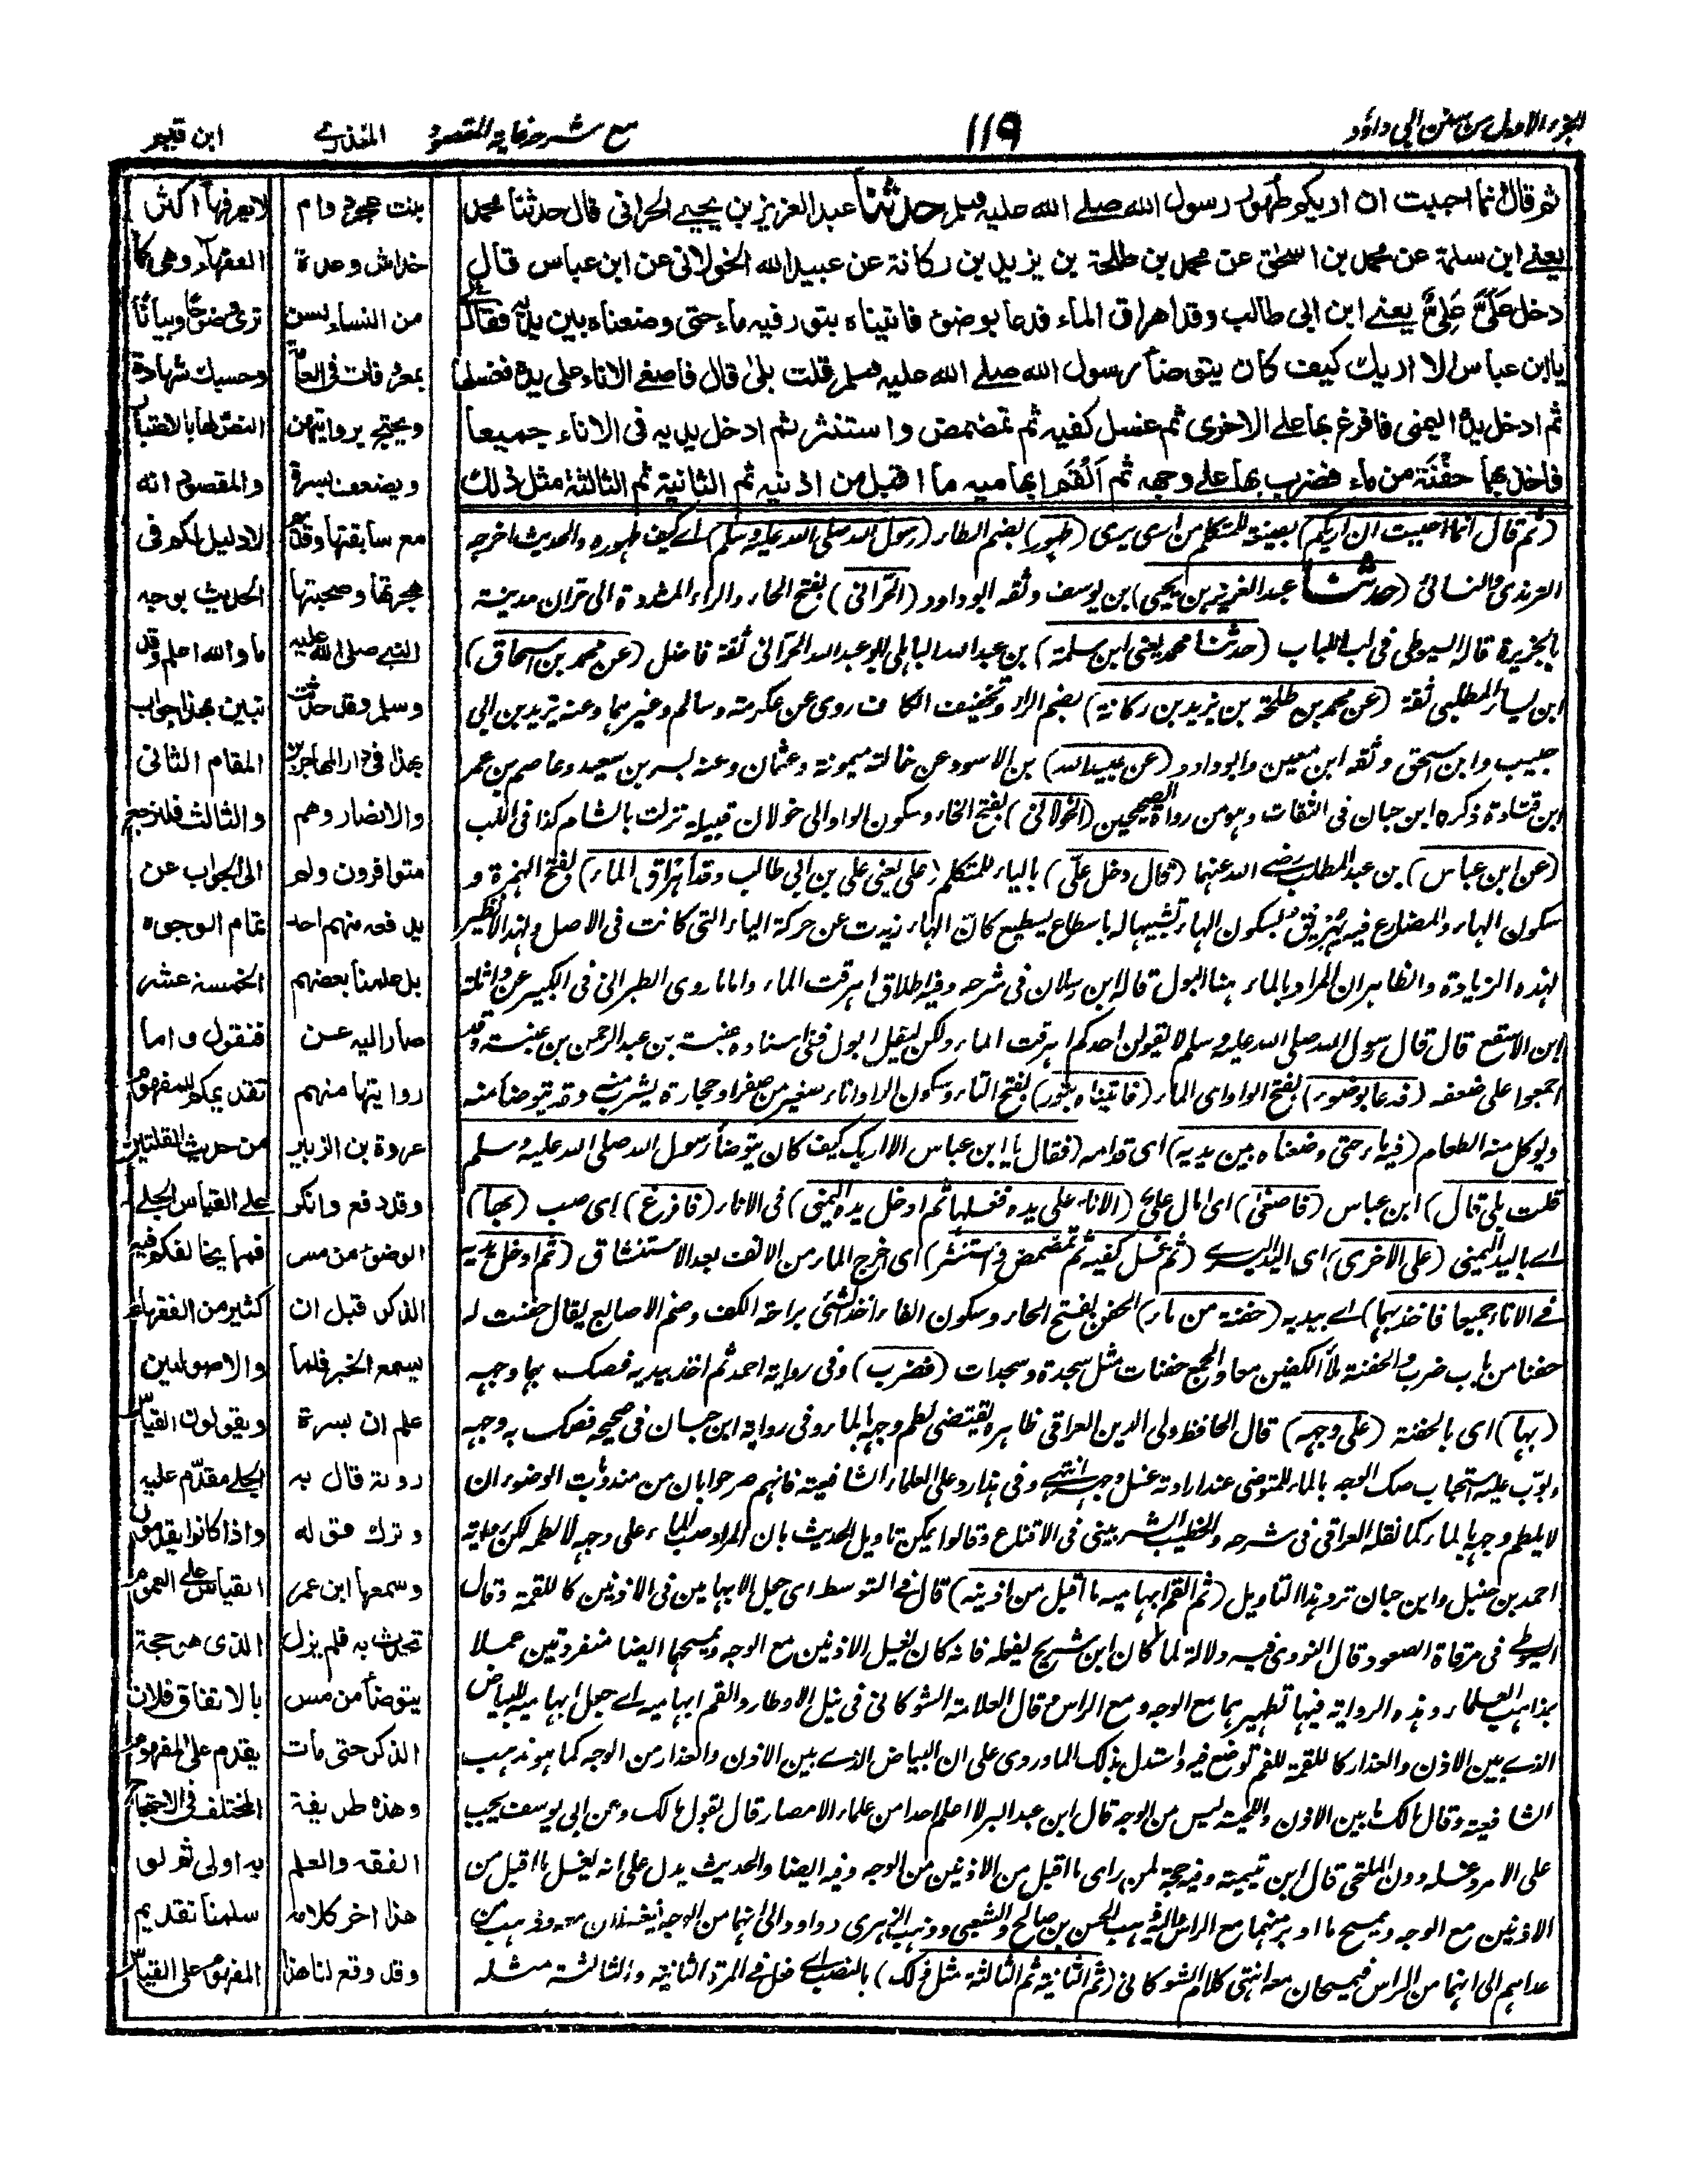 الجزء الاول من سنن ابي داؤد
١١٩
مع شرح غاية المقصود
المنذري
ابن قيم
ثم قال انما احببت ان اريكم طهور رسول الله صلى الله عليه وسلم حدثنا عبد العزيز بن يحيى الحراني قال حدثنا محمد
يعني ابن سلمة عن محمد بن اسحق عن محمد بن طلحة بن يزيد بن ركانة عن عبيد الله الخولاني عن ابن عباس قال
دخل عَلَيَّ عَلِيٌّ يعني ابن ابي طالب وقد اهراق الماء فدعا بوضوء فاتيناه بتور فيه ماء حتى وضعناه بين يديه فقال
يا ابن عباس الا اريك كيف كان يتوضأ رسول الله صلى الله عليه وسلم قلت بلى قال فاصغى الاناء على يده فغسلها
ثم ادخل يده اليمنى فافرغ بها على الاخرى ثم غسل كفيه ثم تمضمض واستنثر ثم ادخل يديه في الاناء جميعا
فاخذ بهما حَفْنَة من ماء فضرب بها على وجهه ثم اَلْقَمَ ابهاميه ما اقبل من اذنيه ثم الثانية ثم الثالثة مثل ذلك
(ثم قال انما احببت ان اريكم) بصيغة المتكلم من ارى يرى (طهور) بضم الطاء (رسول الله صلى الله عليه وسلم) اے كيف طهوره والحديث اخرجه
الترمذي والنسائي (حدثنا عبد العزيز بن يحيى) بن يوسف وثقه ابو داود (الحراني) بفتح الحاء والراء المشددة الى حران مدينة
بالجزيرة قاله السيوطي في لب اللباب (حدثنا محمد يعني ابن سلمة) بن عبد الله الباهلي ابو عبد الله الحراني ثقة فاضل (عن محمد بن اسحاق)
ابن يسار المطلبي ثقة (عن محمد بن طلحة بن يزيد بن ركانة) بضم الراء وتخفيف الكاف روى عن عكرمة وسالم وغيرهما وعنه يزيد بن ابي
حبيب وابن اسحق وثقه ابن معين وابو داود (عن عبيد الله) بن الاسود عن خالته ميمونة وعثمان وعنه بسر بن سعيد وعاصم بن عمر
ابن قتادة ذكره ابن حبان في الثقات وهو من رواة الصحيحين (الخولاني) بفتح الخاء وسكون الواو الى خولان قبيلة نزلت بالشام كذا في اللب
(عن ابن عباس) بن عبد المطلب رضي الله عنهما (قال دخل علي) بالياء للمتكلم (علي يعني علي بن ابي طالب وقد اهراق الماء) بفتح الهمزة و
سكون الهاء والمضارع فيه يُهريق بسكون الهاء تشبيها له باسطاع يسطيع كان الهاء زيدت عن حركة الياء التي كانت في الاصل ولهذا لا نظير
لهذه الزيادة والظاهر ان المراد بالماء هنا البول قاله ابن رسلان في شرحه وفيه اطلاق اهرقت الماء واما ما روى الطبراني في الكبير عن واثلة
ابن الاسقع قال قال رسول الله صلى الله عليه وسلم لا يقولن احدكم اهرقت الماء ولكن ليقل ابول ففي اسناده عنبسة بن عبد الرحمن بن عنبسة وقد
اجمعوا على ضعفه (فدعا بوضوء) بفتح الواو اى الماء (فاتيناه بتور) بفتح التاء وسكون الواو اناء صغير من صفر او حجارة يشرب منه وقد يتوضأ منه
ويوكل منه الطعام (فيه ماء حتى وضعناه بين يديه) اى قدامه (فقال يا ابن عباس الا اريك كيف كان يتوضأ رسول الله صلى الله عليه وسلم
قلت بلى قال) ابن عباس (فاصغى) اى امال علي (الاناء على يده فغسلها ثم ادخل يده اليمنى) في الاناء (فافرغ) اى صب (بها)
اے باليد اليمنى (على الاخرى) اى اليد اليسرے (ثم غسل كفيه ثم تمضمض واستنثر) اى اخرج الماء من الانف بعد الاستنشاق (ثم ادخل يديه
فے الاناء جميعا فاخذ بهما) اے بيديه (حفنة من ماء) الحفن بفتح الحاء وسكون الفاء اخذ الشئ براحة الكف وضم الاصابع يقال حفنت له
حفنا من باب ضرب والحفنة ملأ الكفين معا والجمع حفنات مثل سجدة وسجدات (فضرب) وفى رواية احمد ثم اخذ بيديه فصك بهما وجهه
(بها) اى بالحفنة (على وجهه) قال الحافظ ولى الدين العراقي ظاهره يقتضى لطم وجهه بالماء وفى رواية ابن حبان في صحيحه فصك به وجهه
وبوب عليه استحباب صك الوجه بالماء للمتوضى عند ارادته غسل وجهه انتهے وفى هذا رد على العلماء الشافعية فانهم صرحوا بان من مندوبات الوضوء ان
لا يلطم وجهه بالماء كما نقله العراقي فى شرحه والخطيب الشربينى فى الاقناع وقالوا يمكن تاويل الحديث بان المراد صب الماء على وجهه لا لطمه لكن رواية
احمد بن حنبل وابن حبان ترد هذا التاويل (ثم القم ابهاميه ما اقبل من اذنيه) قال فے التوسط اى جعل الابهامين فى الاذنين كاللقمة وقال
السيوطے فى مرقاة الصعود قال النووى فيه دلالة لما كان ابن شريح يفعله فانه كان يغسل الاذنين مع الوجه ويمسحهما ايضا منفردتين عملا
بمذاهب العلماء وهذه الرواية فيها تطهيرهما مع الوجه ومع الراس قال العلامة الشوكانى فى نيل الاوطار والقم ابهاميه اے جعل ابهاميه للبياض
الذے بين الاذن والعذار كاللقمة للفم توضع فيه واستدل بذلك الماوردى على ان البياض الذے بين الاذن والعذار من الوجه كما هو مذهب
الشافعية وقال مالك ما بين الاذن واللحية ليس من الوجه قال ابن عبد البر لا اعلم احدا من علماء الامصار قال بقول مالك وعن ابى يوسف يجب
على الامرد غسله دون الملتحى قال ابن تيمية وفيه حجة لمن راى ما اقبل من الاذنين من الوجه وفيه ايضا والحديث يدل على انه يغسل ما اقبل من
الاذنين مع الوجه ويمسح ما ادبر منهما مع الراس واليه ذهب الحسن بن صالح والشعبى وذهب الزهرى وداود الى انهما من الوجه فيغسلان معه وذهب من
عداهم الى انهما من الراس فيمسحان معه انتهى كلام الشوكانى (ثم الثانية ثم الثالثة مثل ذلك) بالنصب اے فعل فے المرة الثانية والثالثة مثله
بنت عجرد وام
خداش وعدة
من النساء لسن
بمعروفات فى العامة
ويحتج بروايتهن
ويضعف بسرة
مع سابقتها وقديم
هجرتها وصحبتها
النبے صلى الله عليه
وسلم وقد حدثت
بهذا فى دار المهاجرين
والانصار وهم
متوافرون ولم
يدفعه منهم احد
بل علمنا بعضهم
صار اليه عن
روايتها منهم
عروة بن الزبير
وقد دفع وانكر
الوضوء من مس
الذكر قبل ان
يسمع الخبر فلما
علم ان بسرة
روته قال به
وترك قوله
وسمعها ابن عمر
تحدث به فلم يزل
يتوضأ من مس
الذكر حتى مات
وهذه طريقة
الفقه والعلم
هذا اخر كلامه
وقد وقع لنا هذا
لا يعرفها اكثر
الفقهاء وهى كما
ترى وضوحا وبيانا
وحسبك شهادة
النص لها بالاعتبار
والمقصود انه
لا دليل لكم فى
الحديث بوجه
ما والله اعلم وقد
تبين بهذا جواب
المقام الثانى
والثالث فلنرجع
الى الجواب عن
تمام الوجوه
الخمسة عشر
فنقول واما
تقديمكم للمفهوم
من حديث القلتين
على القياس الجلے
فمما يخالفكم فيه
كثير من الفقهاء
والاصوليين
ويقولون القياس
الجلے مقدم عليه
واذا كانوا يقدمون
القياس على العموم
الذى هو حجة
بالاتفاق فلان
يقدم على المفهوم
المختلف فى الاحتجاج
به اولى ثم لو
سلمنا تقديم
المفهوم على القياس